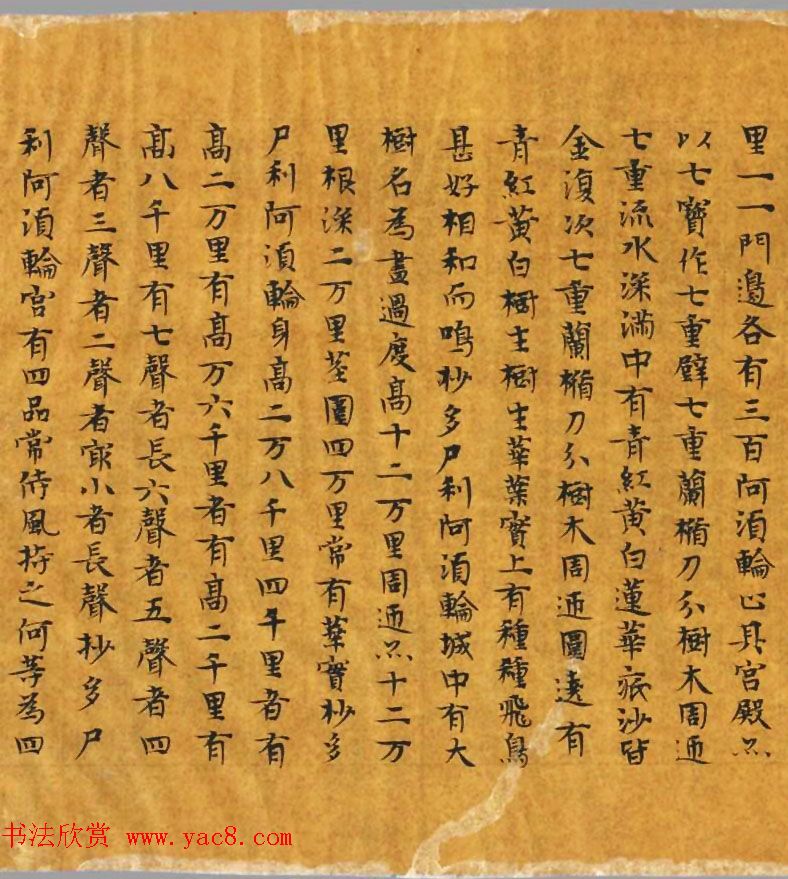 里一一門邊各有三百阿須輪止其宮殿亦
以七寶作七重壁七重蘭楯刀分樹木周迊
七重流水深滿中有青紅黃白蓮華底沙皆
金復次七重蘭楯刀分樹木周迊圍遶有
青紅黃白樹生樹生華葉實上有種種飛鳥
甚好相和而鳴杪多尸利阿須輪城中有大
樹名為晝過度高十二万里周迊亦十二万
里根深二万里莖圍四万里常有華實杪多
尸利阿須輪身高二万八千里四千里者有
高二万里有高万六千里者有高二千里有
高八千里有七聲者長六聲者五聲者四
聲者三聲者二聲者㝡小者長聲杪多尸
利阿須輪宮有四品常侍風持之何等為四
书法欣赏 www.yac8.com